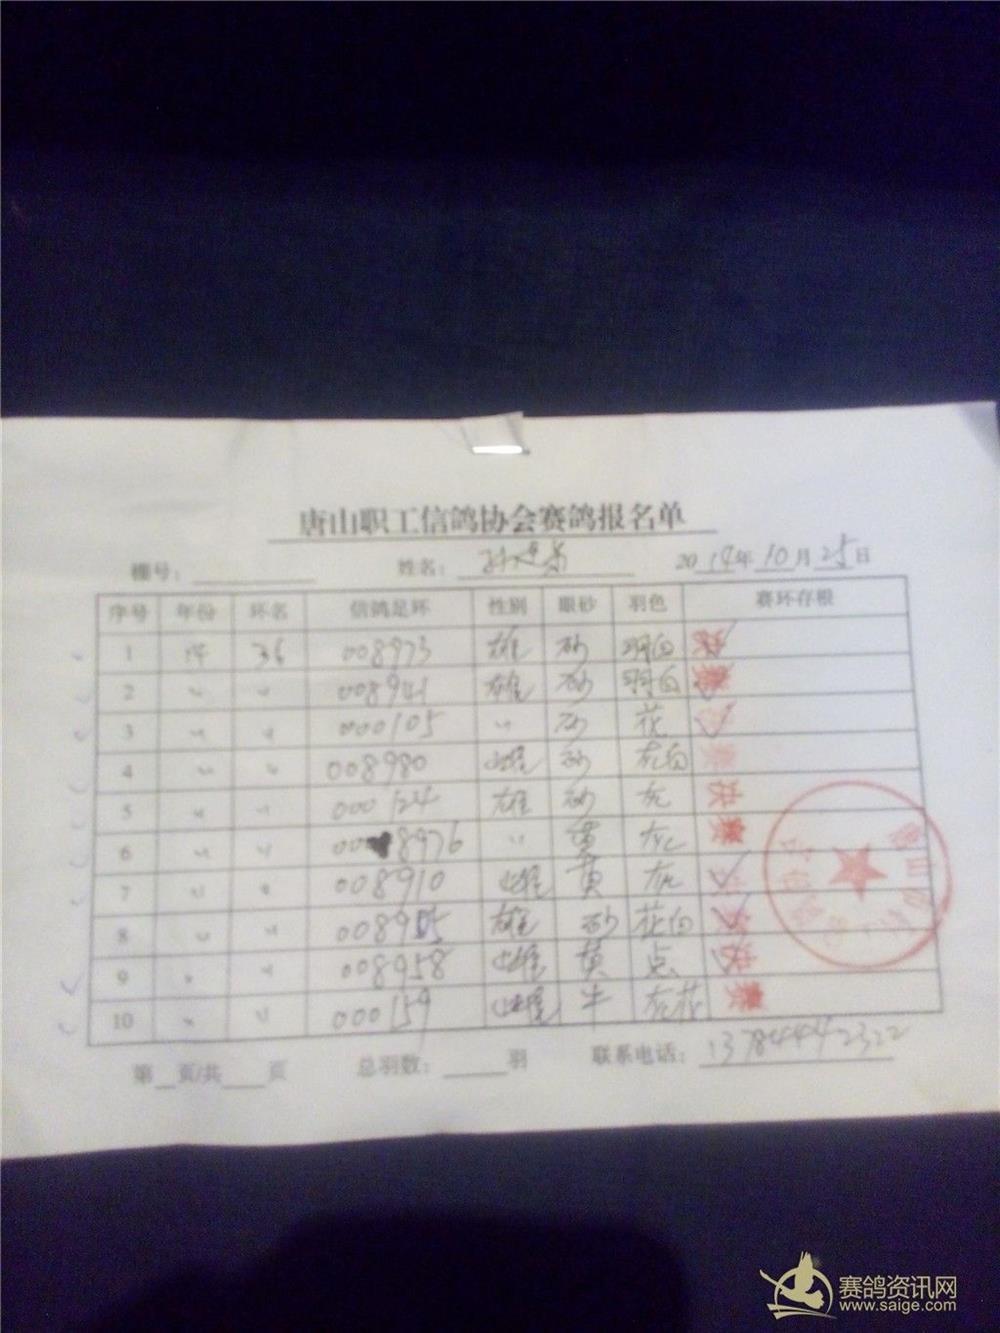 唐山职工信鸽协会赛鸽报名单
棚号: 姓名: 2014年10月25日
序号 年份 环名 信鸽足环 性别 眼砂 羽色 赛环存根
1 14 36 008973 雄 砂 羽白
2 〃 〃 008941 雄 砂 羽白
3 〃 〃 000105 〃 砂 花
4 〃 〃 008980 雌 砂 灰白
5 〃 〃 000124 雄 砂 灰 决
6 〃 〃 008976 〃 黄 灰 赛
7 〃 〃 008910 雌 黄 灰
8 〃 〃 雄 砂 花白
9 〃 〃 008958 雌 黄 点 决
10 〃 〃 000159 雌 牛 灰花 赛
第 页/共 页 总羽数: 羽 联系电话: 13784442322
赛鸽资讯网
www.saige.com